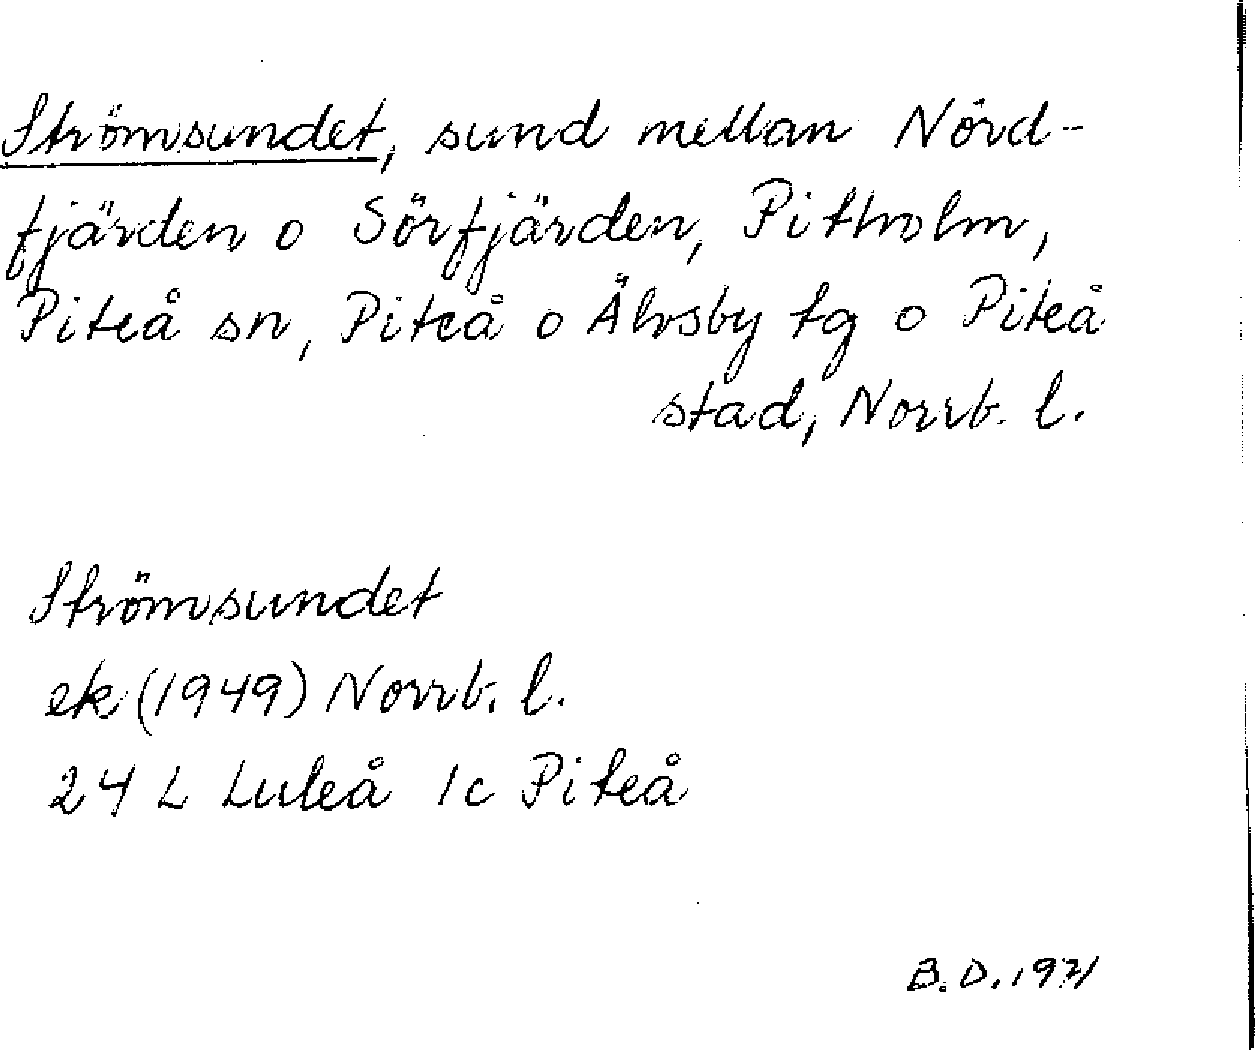 Strömsundet, sund mellan Nörd-
fjärden o Sörfjärden, Pitholm,
Piteå sn, Piteå o Älvsby tg o Piteå
stad, Norrb. l.
Strömsundet
ek (1949) Norrb. l.
24 L Luleå 1c Piteå
B.D. 1971